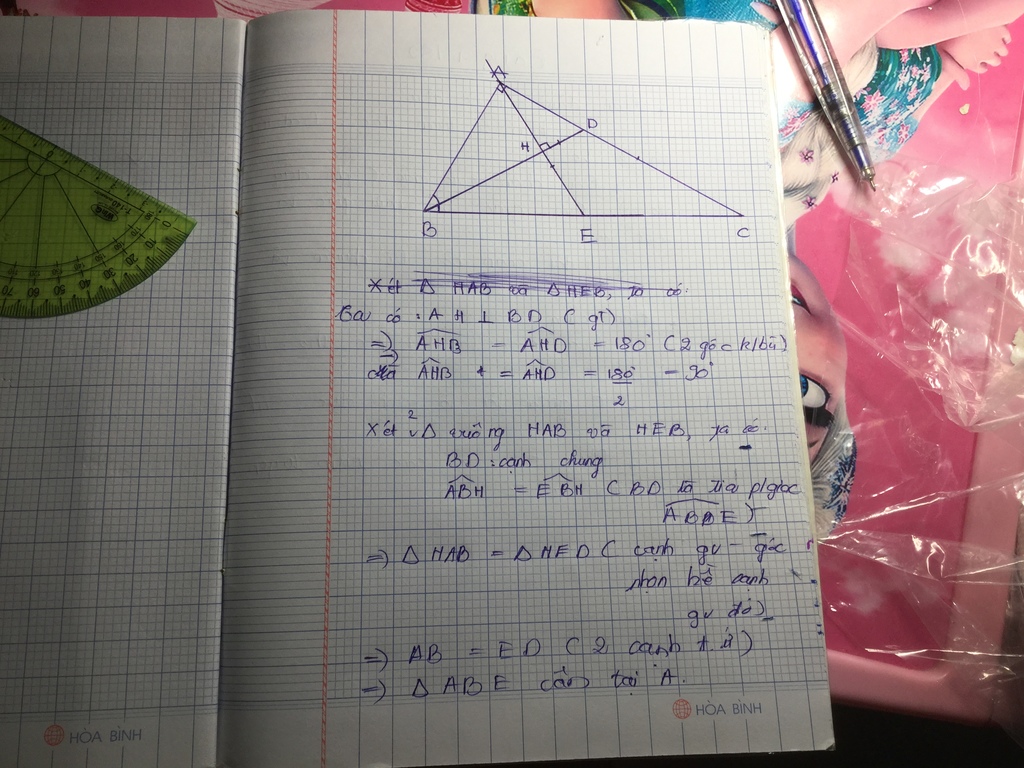 A
D
H
B
E
C
Xét Δ HAB và Δ HEB, ta có:
Ta có : A H ⊥ BD ( gt)
=> AHB = AHD = 180° ( 2 góc k/bù)
AHB = AHD = 180° = 90°
2
Xét 2 Δ vuông HAB và HEB, ta có:
BD : cạnh chung
ABH = EBH ( BD là tia p/giác
E )
=> Δ HAB = Δ HED ( cạnh gv - góc
nhọn kề cạnh
gv đó)
=> AB = ED ( 2 cạnh t.ứ)
=> Δ ABE cân tại A.
HÒA BÌNH
HÒA BÌNH